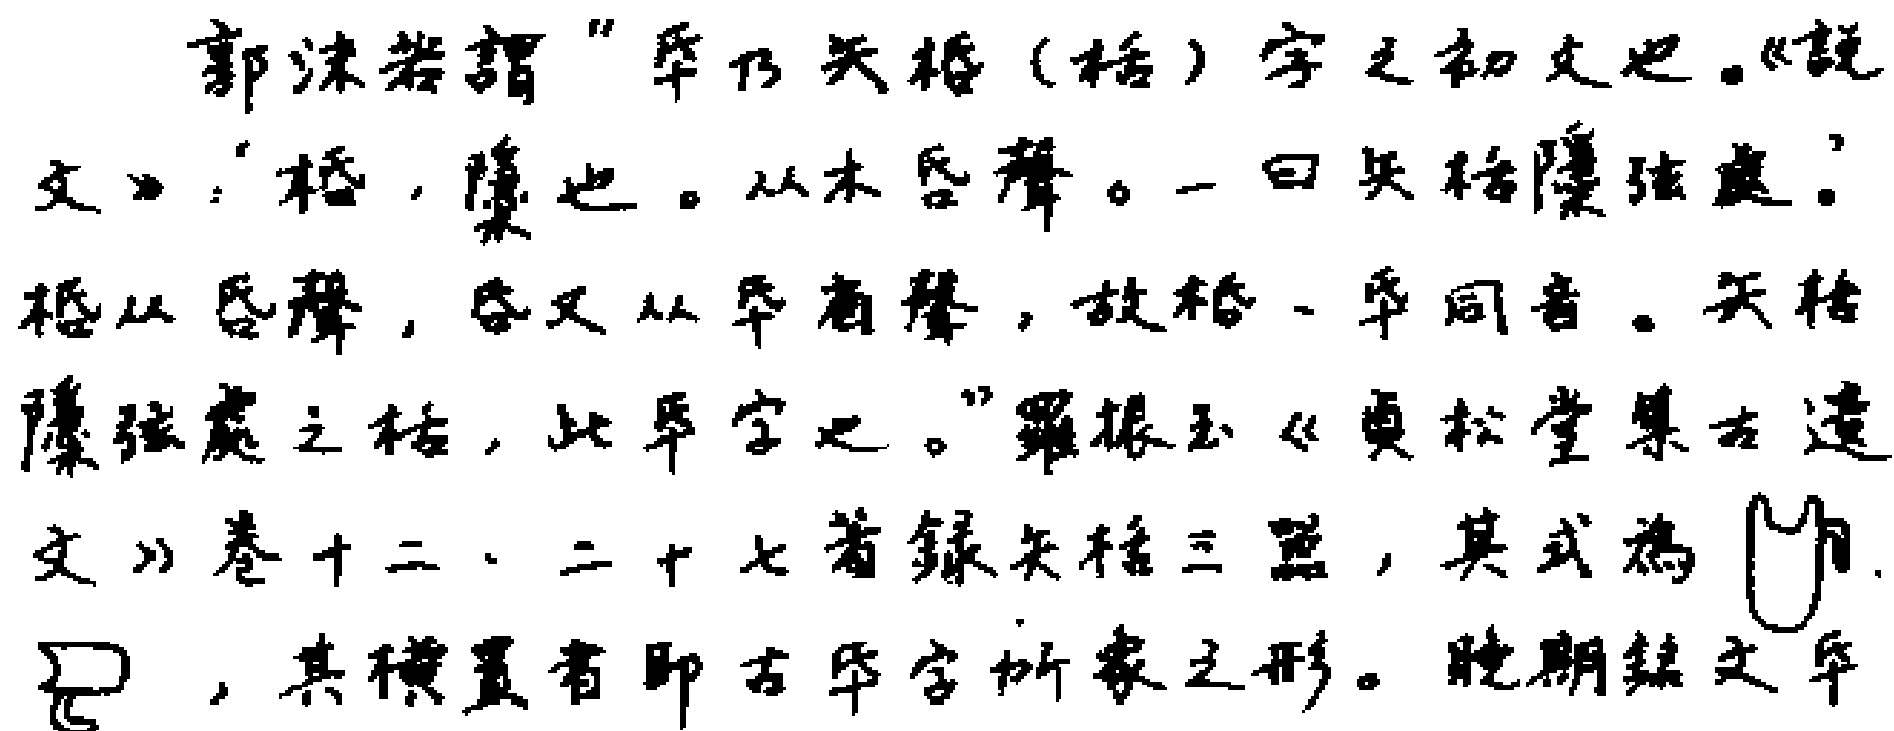 郭沫若謂“氒乃矢桰（栝）字之初文也。《說
文》：‘桰，檃也。从木𠯑聲。一曰矢栝檃弦處。’
桰从𠯑聲，𠯑又从氒省聲，故桰、氒同音。矢栝
檃弦處之栝，此氒字也。”羅振玉《貞松堂集古遺
文》卷十二·二十七著錄矢栝三器，其式為、
，其橫置者即古氒字所象之形。晚期銘文氒